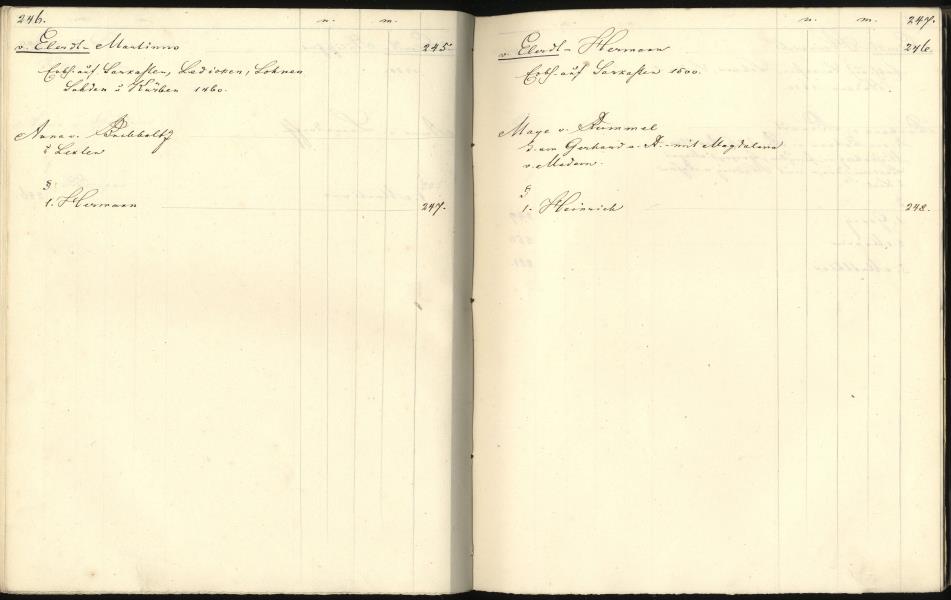 246. n. m.
v. Elerdt- Martinno 245
Erbh. auf Sarzasten, Ledicken, Lohnen
Lahden u Kürben 1460.
Anna v. Buchholtz
u Lexten
§
1. Hermann 247.
n. m. 247.
v. Elerdt- Hermann 246
Erbh. auf Sarzasten 1500.
Maye v. Rummel
d. am Gerhard v. R. - mit Magdalena
v. Medem.
§
1. Heinrich 248.